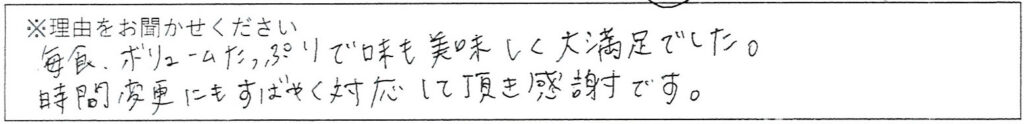 ※理由をお聞かせください
毎食、ボリュームたっぷりで味も美味しく大満足でした。
時間変更にもすばやく対応して頂き感謝です。